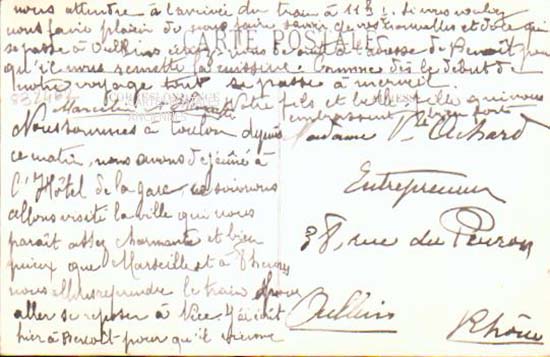 nous attendre à l'arrivée du train à 11h½. Si vous voulez
nous faire plaisir de nous faire savoir de vos nouvelles et de ce qui
se passe à Oullins à l'adresse de Benoît pour
qu'il nous remette Comme dès le début de
notre voyage tout se passe à merveil.
CARTE POSTALE
Votre fils et belle fille qui vous
embrassent bien fort
Marseille
Nous sommes à Toulon depuis
ce matin, nous avons dejeûné à
l'Hôtel de la gare, ce soir nous
allons visité la ville qui nous
paraît assez charmante et bien
mieux que Marseille et à 8 heures
nous allons reprendre le train pour
aller se reposer à Nice. J'ai écrit
hier à Benoît pour qu'il vienne
Madame Achard
Entrepreneur
38, rue du Perron
Oullins
Rhône